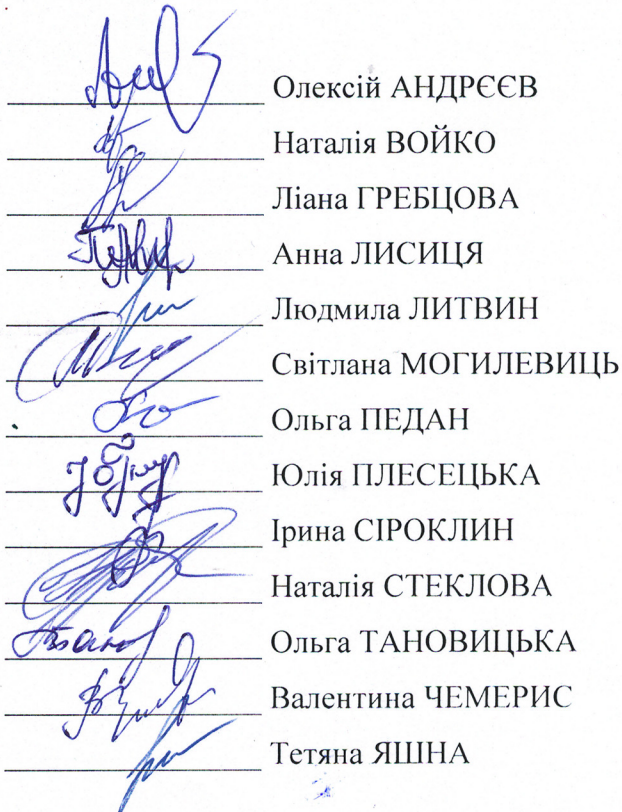 Олексій АНДРЄЄВ
Наталія ВОЙКО
Ліана ГРЕБЦОВА
Анна ЛИСИЦЯ
Людмила ЛИТВИН
Світлана МОГИЛЕВИЦЬ
Ольга ПЕДАН
Юлія ПЛЕСЕЦЬКА
Ірина СІРОКЛИН
Наталія СТЕКЛОВА
Ольга ТАНОВИЦЬКА
Валентина ЧЕМЕРИС
Тетяна ЯШНА